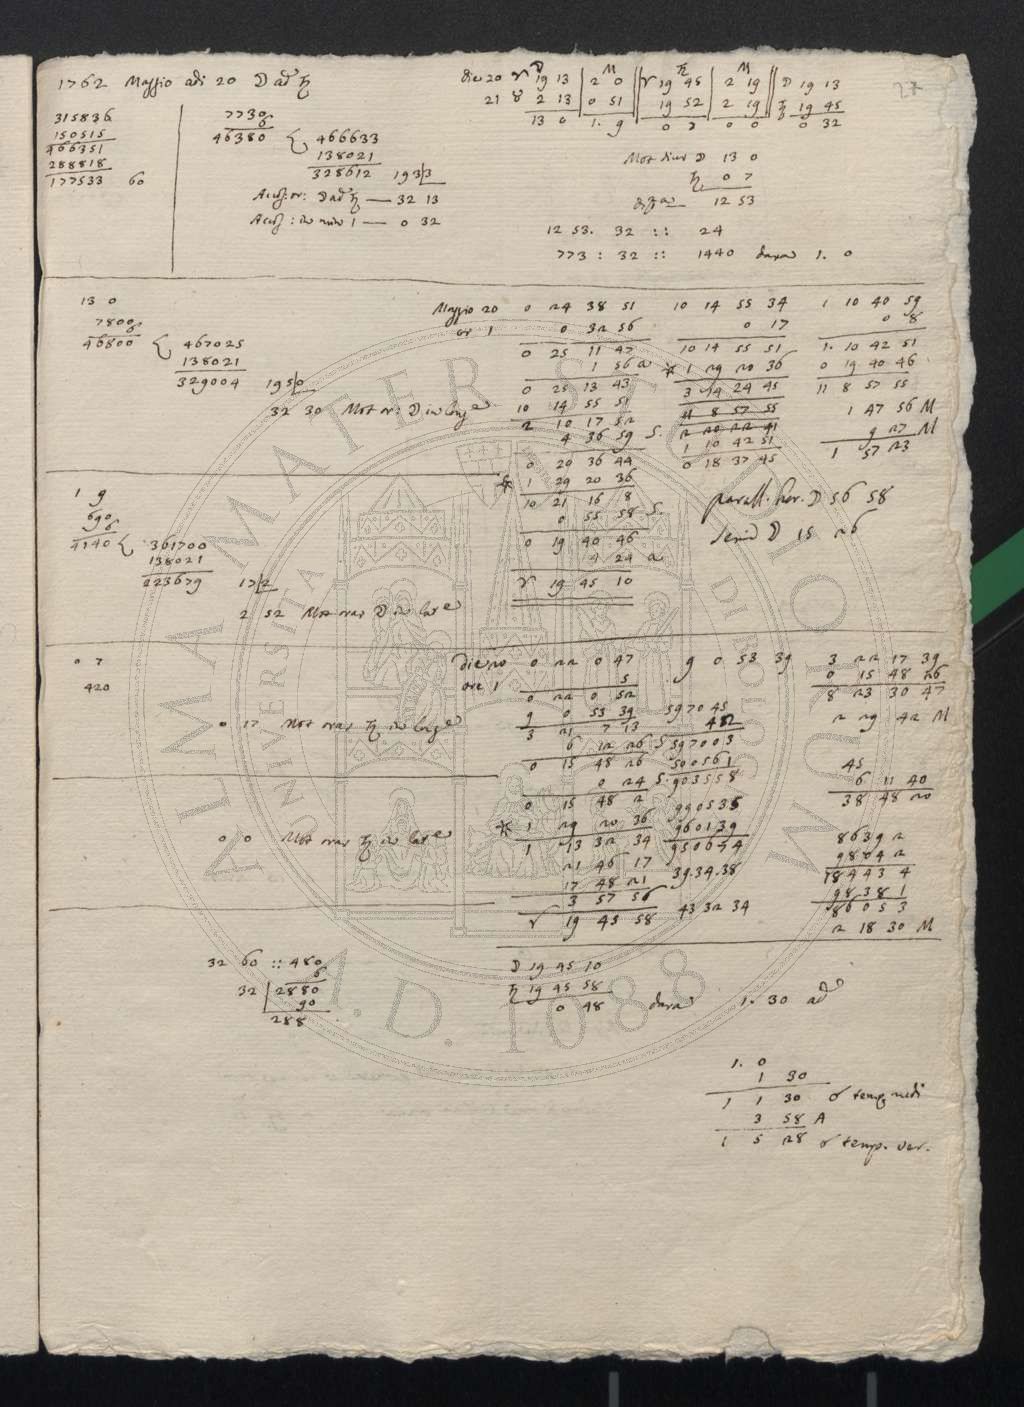 1762 Maggio adi 20 ☽ ad ♄
27
315836
150515
466351
288818
177533 60
7730
6
46380 466633
138021
328612 193|3
☽ ad ♄ — 32 13
— 0 32
die 20 ♈ ☽ 19 13 | M 2 0 || ♈ ♄ 19 45 | M 2 19 || ☽ 19 13
21 ♉ 2 13 | 0 51 || 19 52 | 2 19 || ♄ 19 45
13 0 1. 9 0 7 0 0 0 32
Mot diur ☽ 13 0
♄ 0 7
12 53
12 53. 32 :: 24
773 : 32 :: 1440 1. 0
13 0
7800
6
46800 467025
138021
329004 195|0
32 30 Mot or: ☽ in long
Maggio 20 0 24 38 51 10 14 55 34 1 10 40 59
or 1 0 32 56 0 17 0 8
0 25 11 47 10 14 55 51 1. 10 42 51
1 56 a * 1 29 20 36 0 19 40 46
0 25 13 43 3 14 24 45 11 8 57 55
10 14 55 51 11 8 57 55 1 47 56 M
2 10 17 52 2 20 22 41 9 27 M
4 36 59 S. 1 10 42 51 1 57 23
0 20 36 44 0 18 37 45
* 1 29 20 36
10 21 16 8
0 55 58 S.
0 19 40 46
4 24 a
♈ 19 45 10
parall. hor. ☽ 56 58
semid ☽ 15 26
1 9
690
6
4140 361700
138021
223679 17|2
2 52 Mot orar ☽ in lat
0 7
420
0 17 Mot orar ♄ in long
0 0 Mot orar ♄ in lat
die 20 0 22 0 47 9 0 53 39 3 22 17 39
ore 1 5 0 15 48 26
0 22 0 52 8 23 30 47
9 0 53 39 597045 2 29 42 M
3 21 7 13 482
6 12 26 S 597003
0 15 48 26 500561 45
0 24 S. 903558 6 11 40
0 15 48 2 38 48 20
* 1 29 20 36 990535
1 13 32 34 960139 8639 2
21 46 17 950644 9804 2
17 48 21 39.34.38 18443 4
3 57 56 9838 1
♈ 19 45 58 43 32 34 86053
2 18 30 M
32 60 :: 480
6
32 | 2880
90
288
☽ 19 45 10
♄ 19 45 58
0 48 1. 30
1. 0
1 30
1 1 30 ☌ temp. medi
3 58 A
1 5 28 ☌ temp. ver.
ALMA MATER STUDIORUM
UNIVERSITA DI BOLOGNA
A.D. 1088